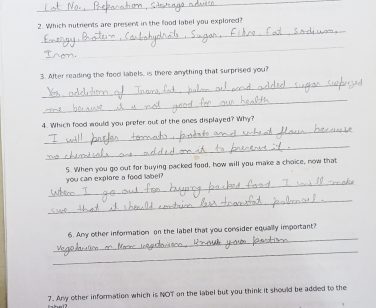 Lot No., Preparation, Storage advice
2. Which nutrients are present in the food label you explored?
Energy, Protein, Carbohydrate, Sugar, Fibre, Fat, Sodium,
Iron.
3. After reading the food labels, is there anything that surprised you?
Yes addition of Trans fat, palm oil and added sugar surprised
me because it is not good for our health
4. Which food would you prefer out of the ones displayed? Why?
I will prefer tomato, potato and wheat flour because
no chemicals are added on it to preserve it.
5. When you go out for buying packed food, how will you make a choice, now that
you can explore a food label?
When I go out for buying packed food I will make
sure that it should contain less transfat, palmoil.
6. Any other information on the label that you consider equally important?
Vegetarian or Non vegetarian, Know your portion
7. Any other information which is NOT on the label but you think it should be added to the
label?